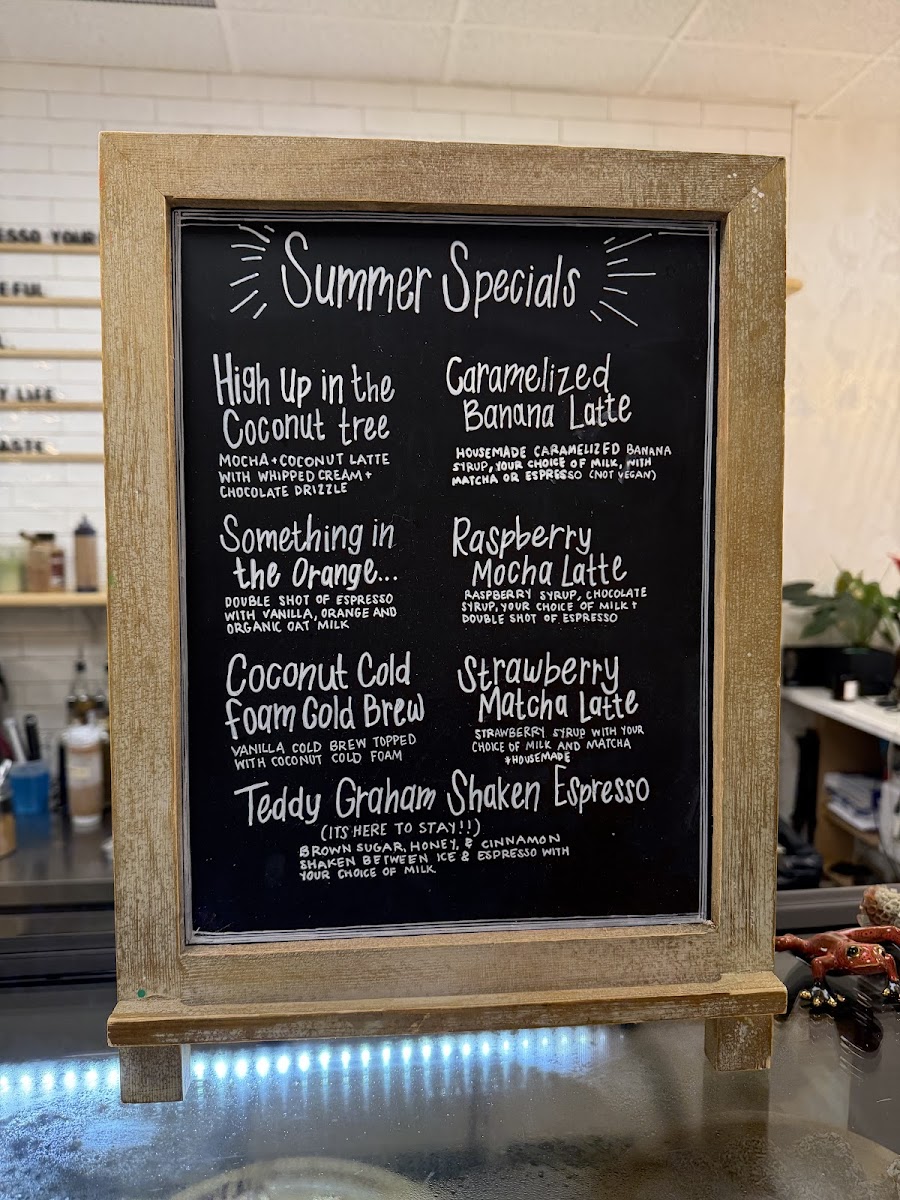 Summer Specials
High Up in the
Coconut tree
MOCHA + COCONUT LATTE
WITH WHIPPED CREAM +
CHOCOLATE DRIZZLE
Something in
the Orange...
DOUBLE SHOT OF ESPRESSO
WITH VANILLA, ORANGE AND
ORGANIC OAT MILK
Coconut Cold
foam Cold Brew
VANILLA COLD BREW TOPPED
WITH COCONUT COLD FOAM
Caramelized
Banana Latte
HOUSEMADE CARAMELIZED BANANA
SYRUP, YOUR CHOICE OF MILK, WITH
MATCHA OR ESPRESSO (NOT VEGAN)
Raspberry
Mocha Latte
RASPBERRY SYRUP, CHOCOLATE
SYRUP, YOUR CHOICE OF MILK +
DOUBLE SHOT OF ESPRESSO
Strawberry
Matcha Latte
STRAWBERRY SYRUP WITH YOUR
CHOICE OF MILK AND MATCHA
*HOUSEMADE
Teddy Graham Shaken Espresso
(ITS HERE TO STAY!!)
BROWN SUGAR, HONEY, & CINNAMON
SHAKEN BETWEEN ICE & ESPRESSO WITH
YOUR CHOICE OF MILK
ESSO YOUR
EFUL
Y LIFE
ASTE